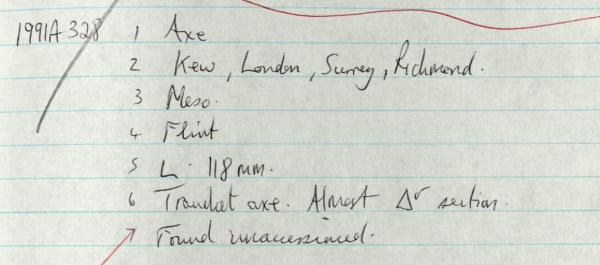 1991A 328 1 Axe
2 Kew, London, Surrey, Richmond.
3 Meso.
4 Flint
5 L. 118 mm.
6 Tranchet axe. Almost Δr section.
7 Found unaccessioned.